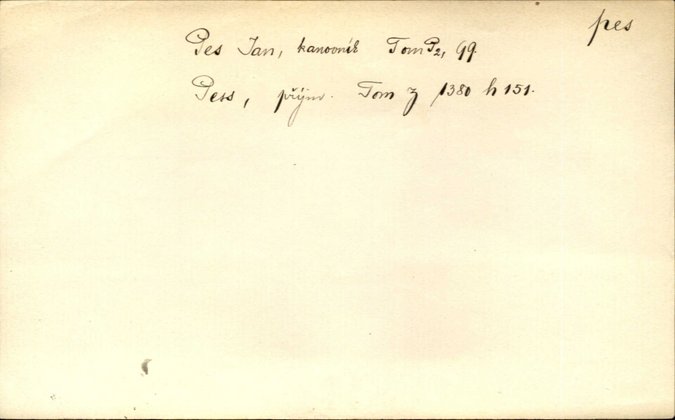 pes
Pes Jan, kanovník Tom P2, 99.
Pess, příjm. Tom Z 1380 h 151.